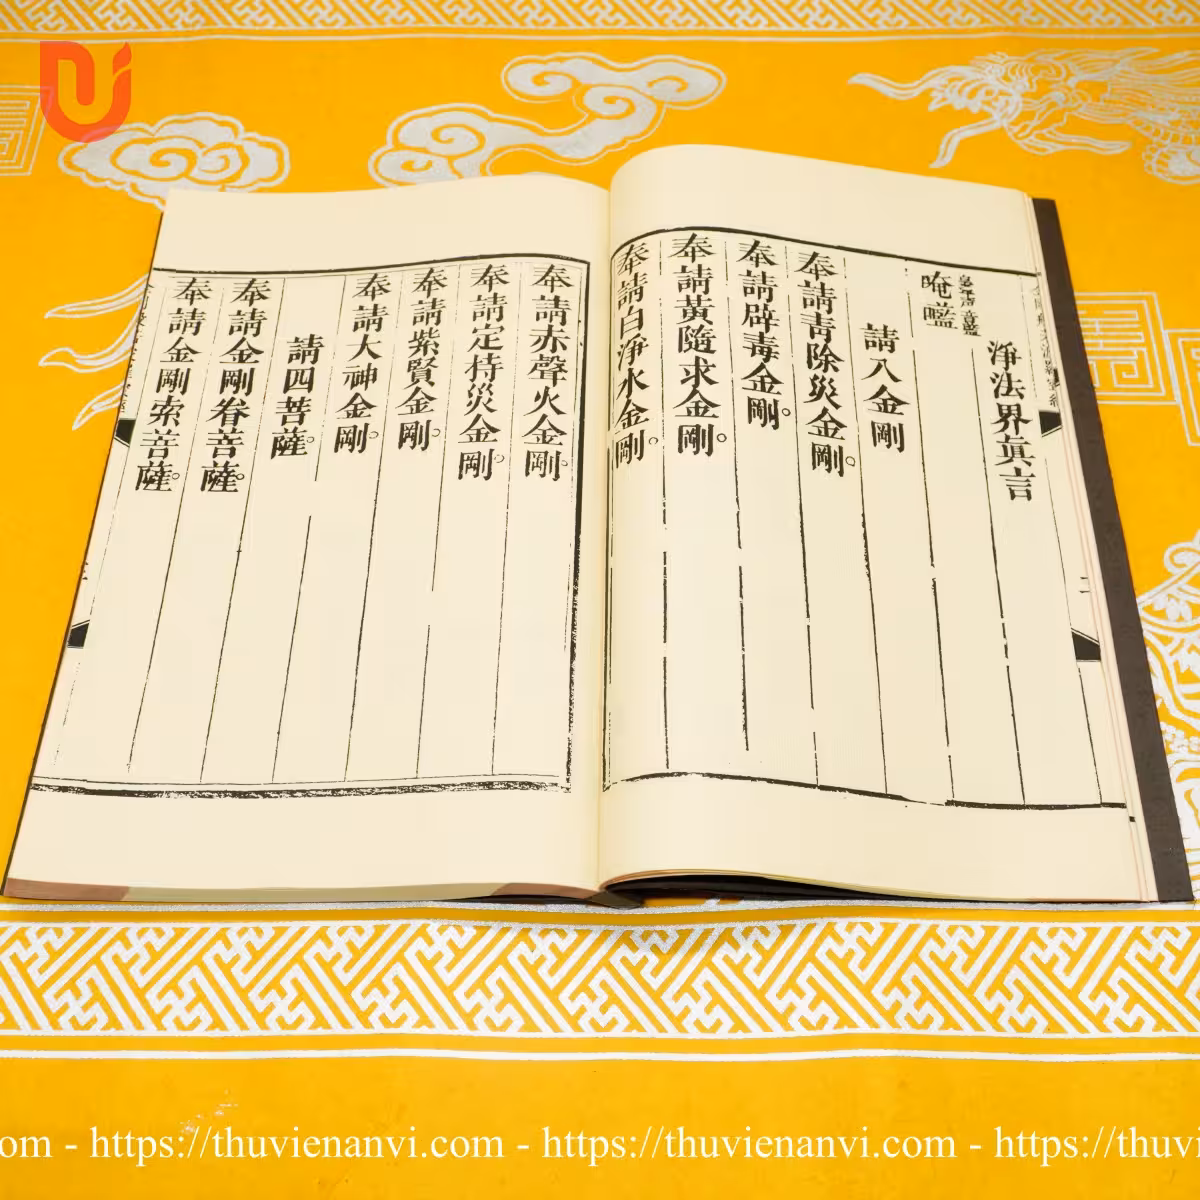 淨法界眞言
唵嚂
請八金剛
奉請青除災金剛。
奉請辟毒金剛。
奉請黃隨求金剛。
奉請白淨水金剛。
奉請赤聲火金剛。
奉請定持災金剛。
奉請紫賢金剛。
奉請大神金剛。
請四菩薩。
奉請金剛眷菩薩。
奉請金剛索菩薩。
om - https://thuvienanvi.com - https://thuvienanvi.com - https://thuvi